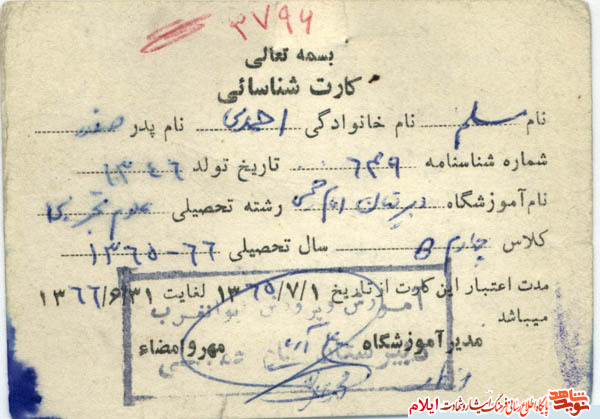 ۳۷۹۶
بسمه تعالی
کارت شناسائی
نام مسلم نام خانوادگی احمدی نام پدر صفدر
شماره شناسنامه ۶۳۹ تاریخ تولد ۱۳۴۶
نام آموزشگاه دبیرستان امام خمینی رشته تحصیلی علوم تجربی
کلاس چهارم B سال تحصیلی ۶۶-۱۳۶۵
مدت اعتبار این کارت از تاریخ ۱۳۶۵/۷/۱ لغایت ۱۳۶۶/۶/۳۱
میباشد
آموزش و پرورش
مدیر آموزشگاه مهر و امضاء
دبیرستان امام خمینی
نوید شاهد پایگاه اطلاع رسانی فرهنگ ایثار و شهادت ایلام